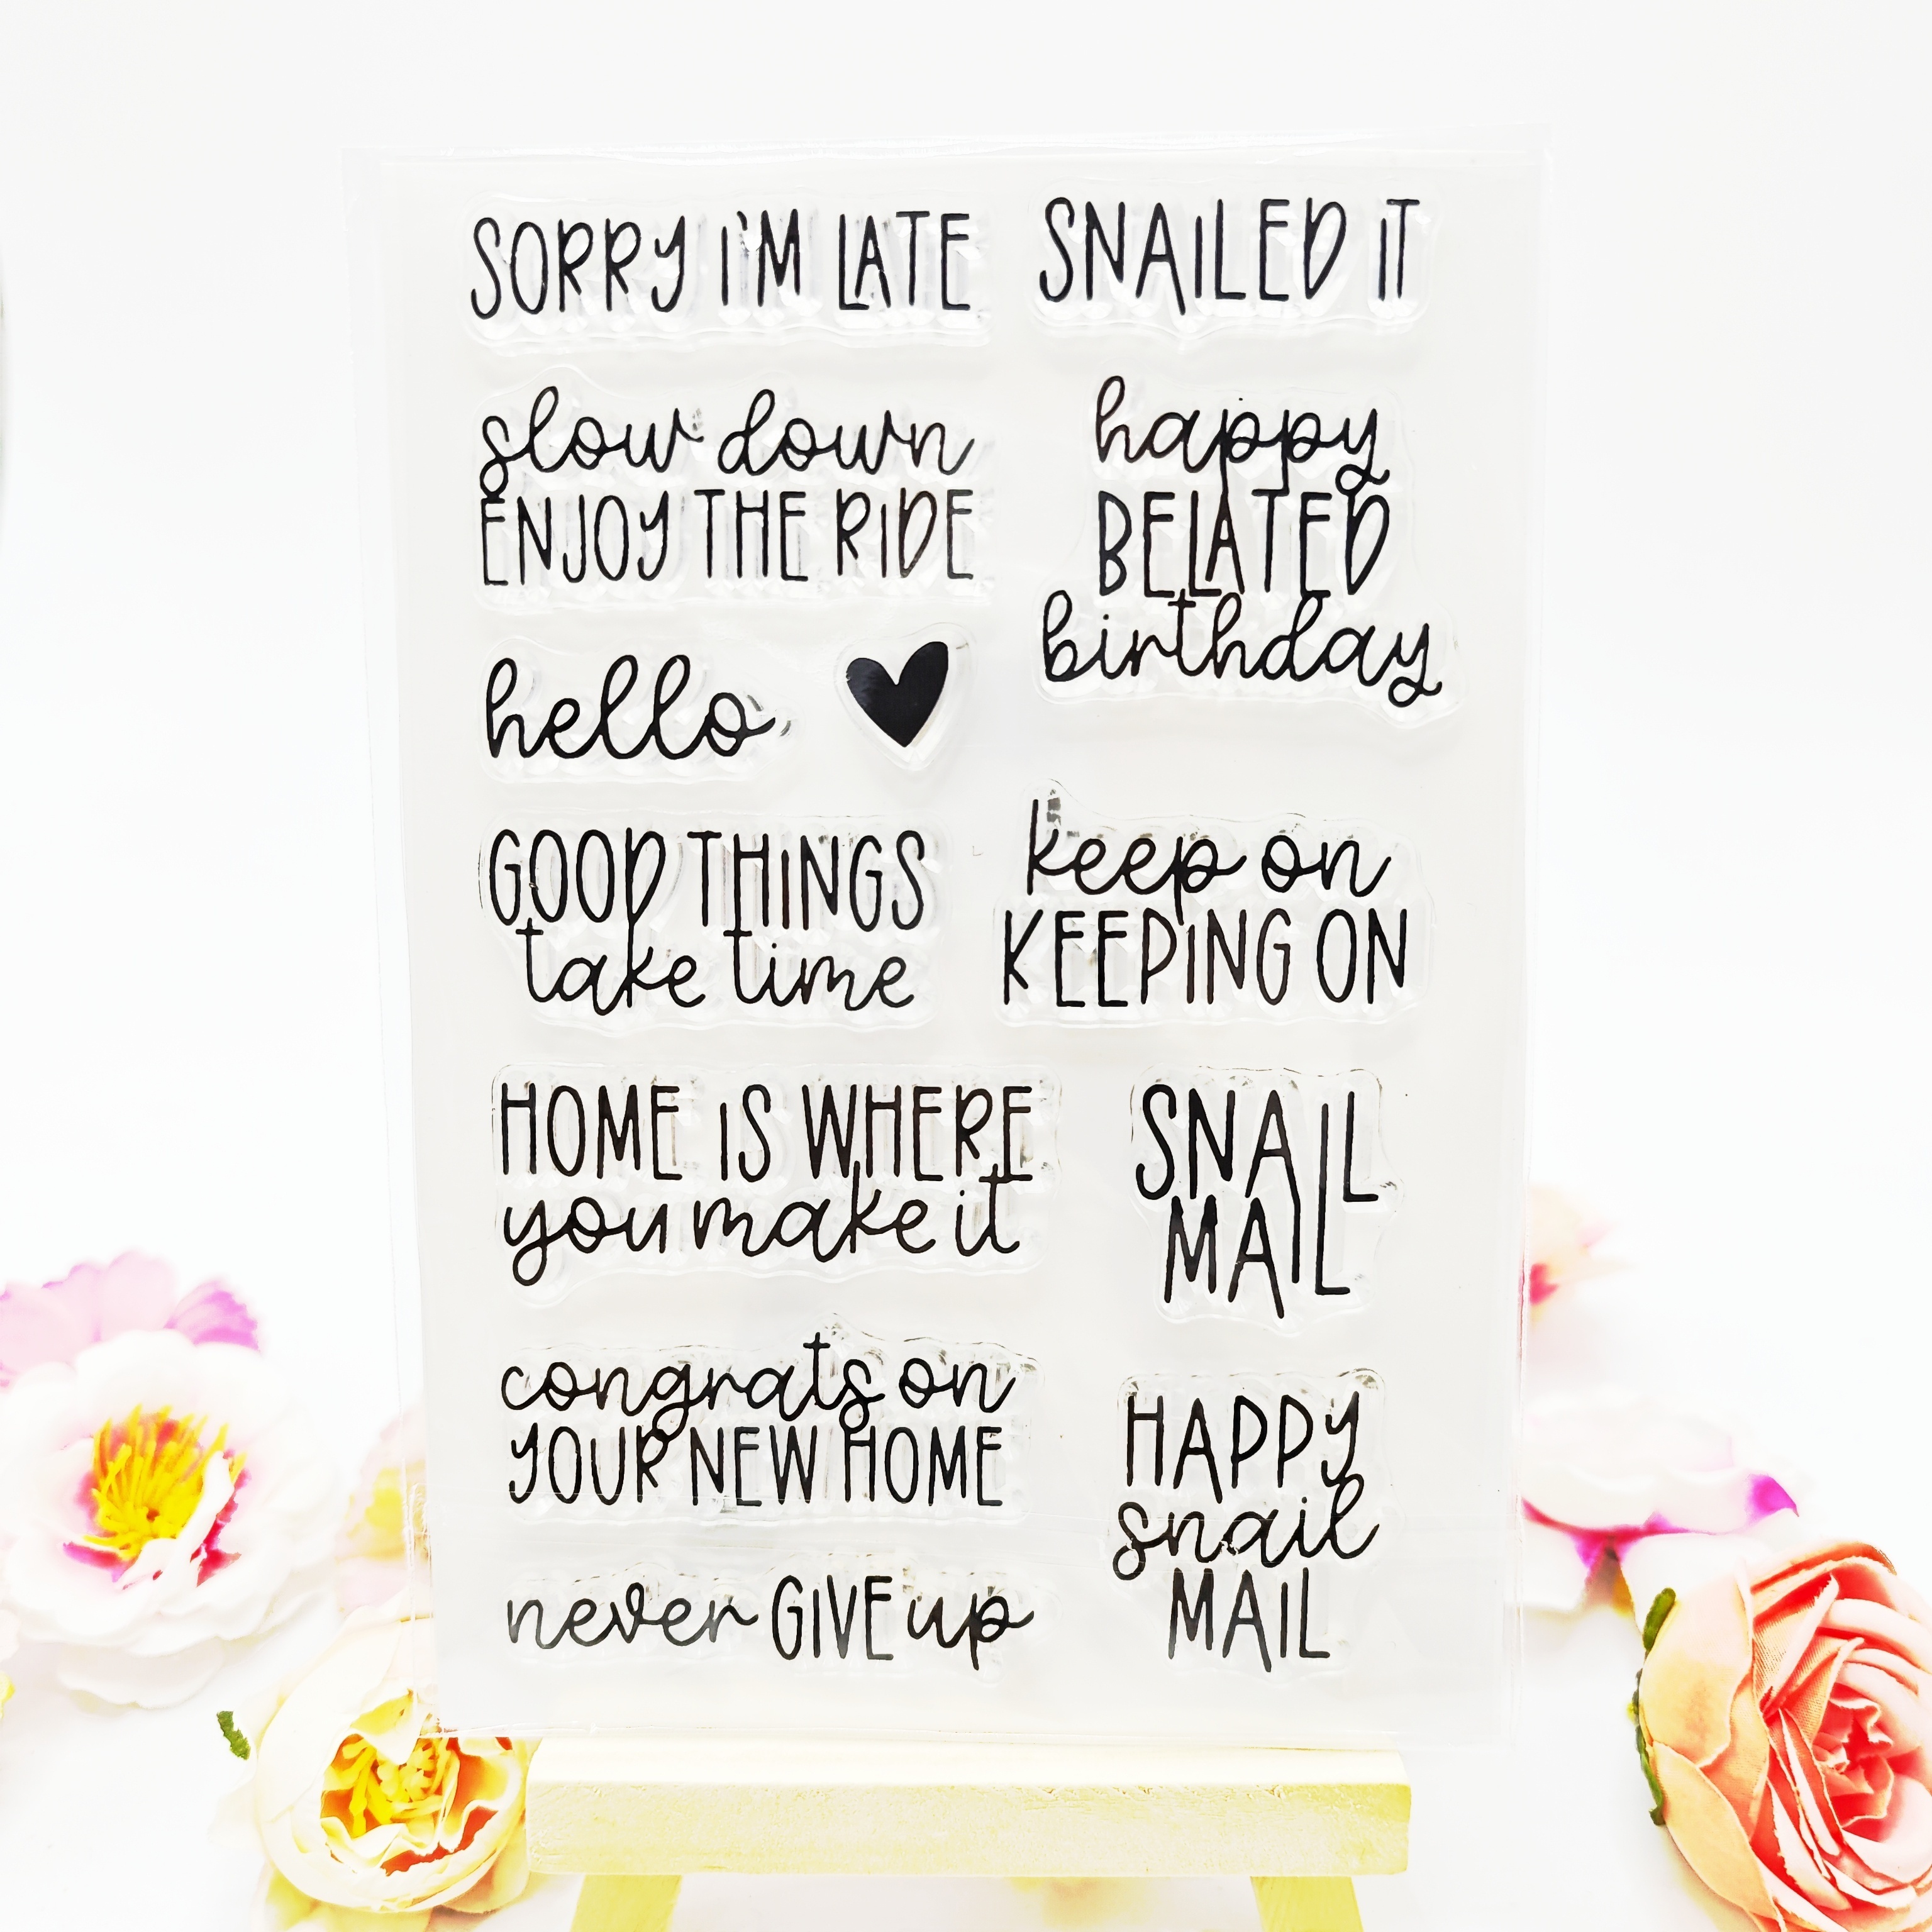 SORRY I'M LATE
SNAILED IT
slow down
ENJOY THE RIDE
happy
BELATED
birthday
hello
GOOD THINGS
take time
keep on
KEEPING ON
HOME IS WHERE
you make it
SNAIL
MAIL
congrats on
YOUR NEW HOME
HAPPY
snail
MAIL
never GIVE up